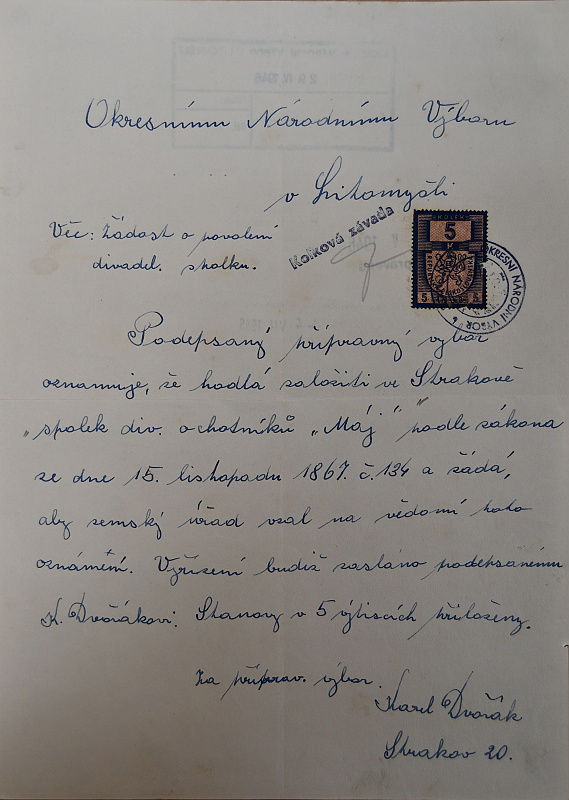 Okresnímu Národnímu Výboru
v Litomyšli
Věc: Žádost o povolení
divadel. spolku.
Kolková závada
KOLEK
5
K
5
OKRESNÍ NÁRODNÍ VÝBOR
Podepsaný přípravný výbor
oznamuje, že hodlá založiti ve Strakově
„spolek div. ochotníků „Máj“ podle zákona
ze dne 15. listopadu 1867. č. 134 a žádá,
aby zemský úřad vzal na vědomí toto
oznámění. Vyřízení budiž zasláno podepsanému
K. Dvořákovi. Stanovy v 5 výtiscích přiloženy.
Za příprav. výbor.
Karel Dvořák
Strakov 20.